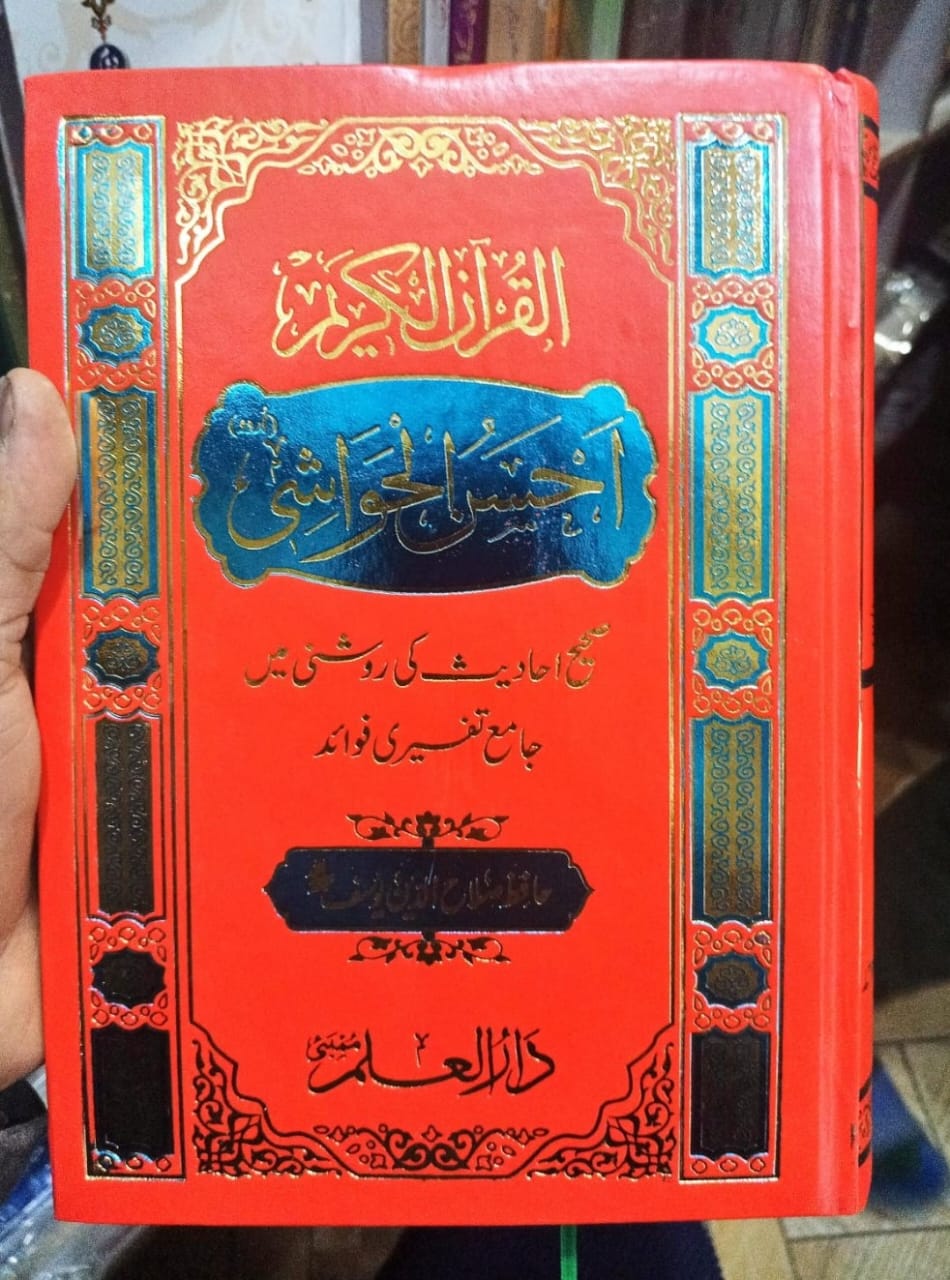 القرآن الكريم
اَحْسَنُ الْحَوَاشِی
صحیح احادیث کی روشنی میں
جامع تفسیری فوائد
حافظ صلاح الدین یوسف
دَارُ العلم ممبئی